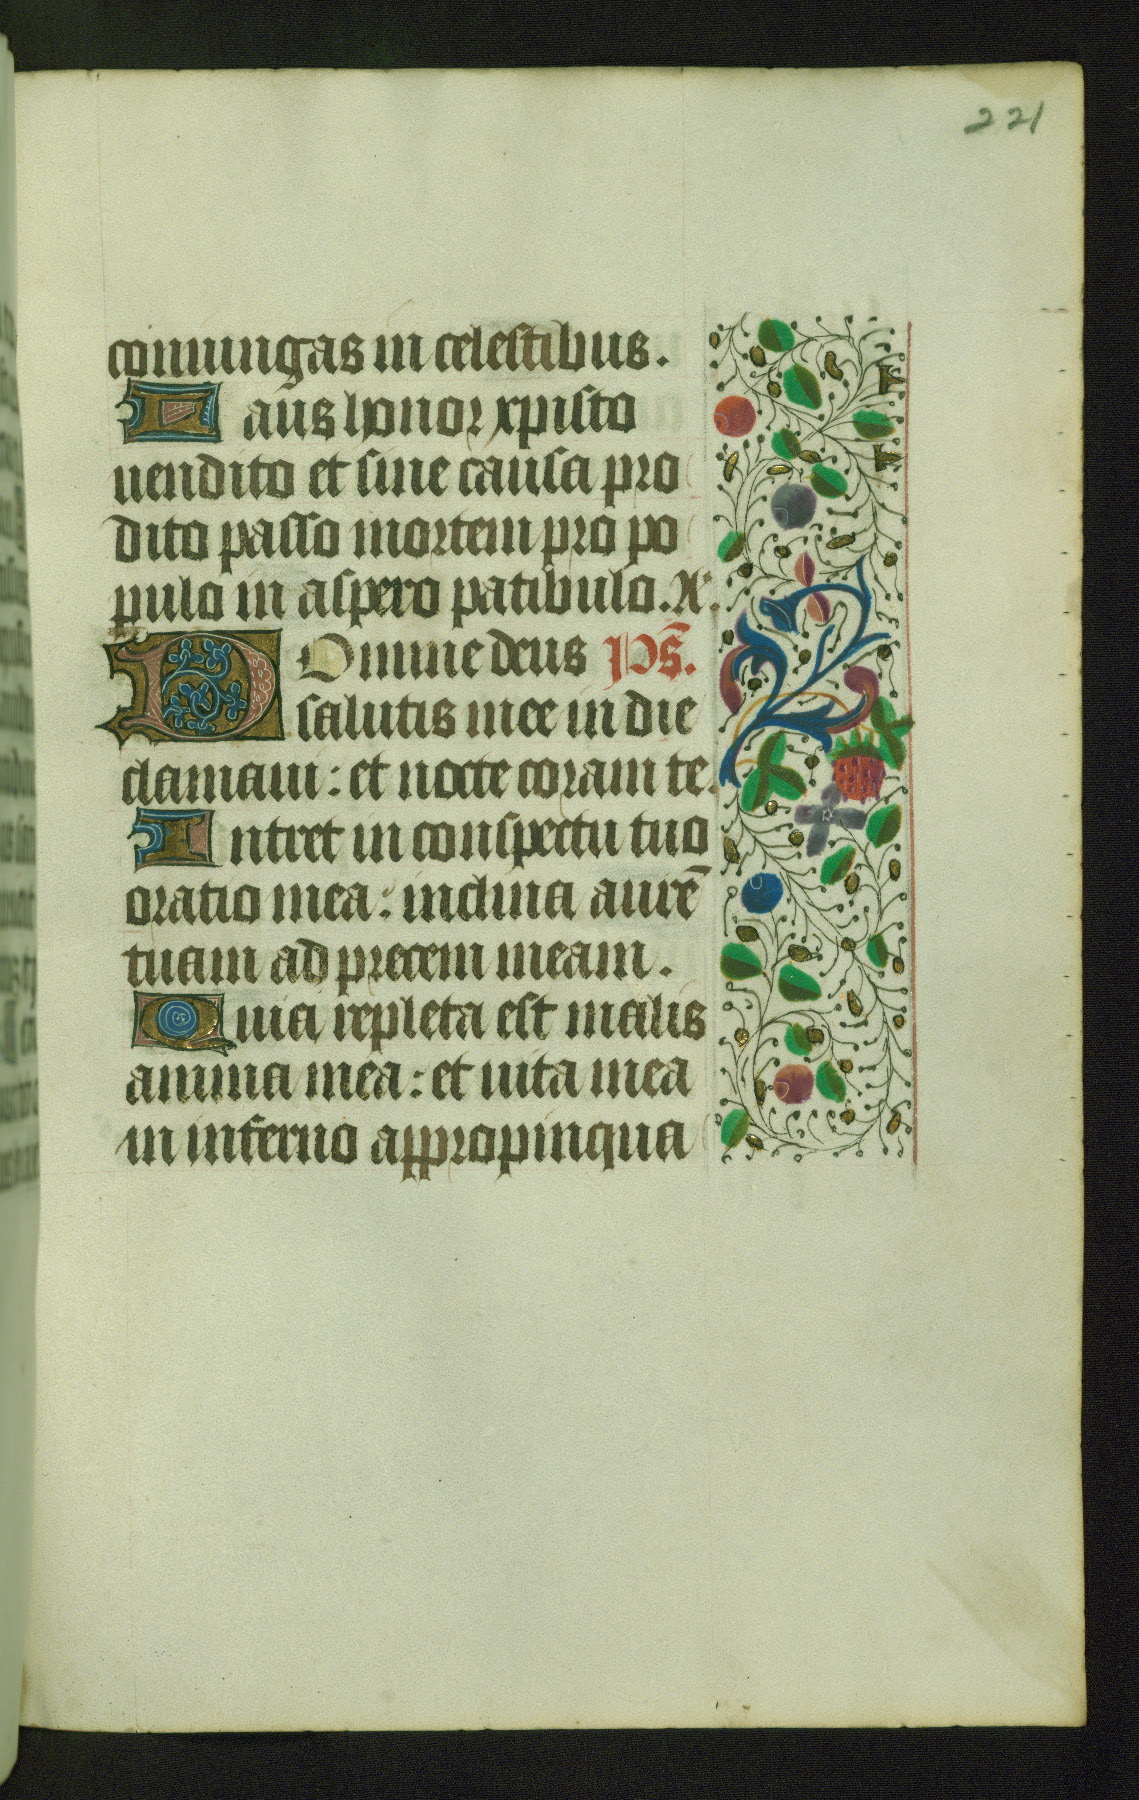 221
coniungas in celestibus.
Laus honor xpisto
uendito et sine causa pro
dito passo mortem pro po
pulo in aspero patibulo. A.
Domine deus Ps̄.
salutis mee in die
clamaui: et nocte coram te.
Intret in conspectu tuo
oratio mea: inclina aurē
tuam ad precem meam.
Quia repleta est malis
anima mea: et uita mea
in inferno appropinqua